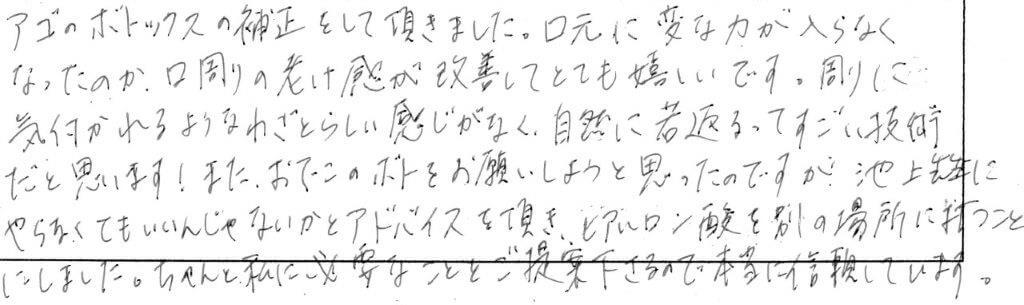 アゴのボトックスの補正をして頂きました。口元に変な力が入らなく
なったのか、口周りの老け感が改善してとても嬉しいです。周りに
気付かれるようなわざとらしい感じがなく、自然に若返るってすごい技術
だと思います！また、おでこのボトをお願いしようと思ったのですが、池上先生に
やらなくてもいいんじゃないかとアドバイスを頂き、ヒアルロン酸を別の場所に打つこと
にしました。ちゃんと私に必要なことをご提案下さるので本当に信頼しています。